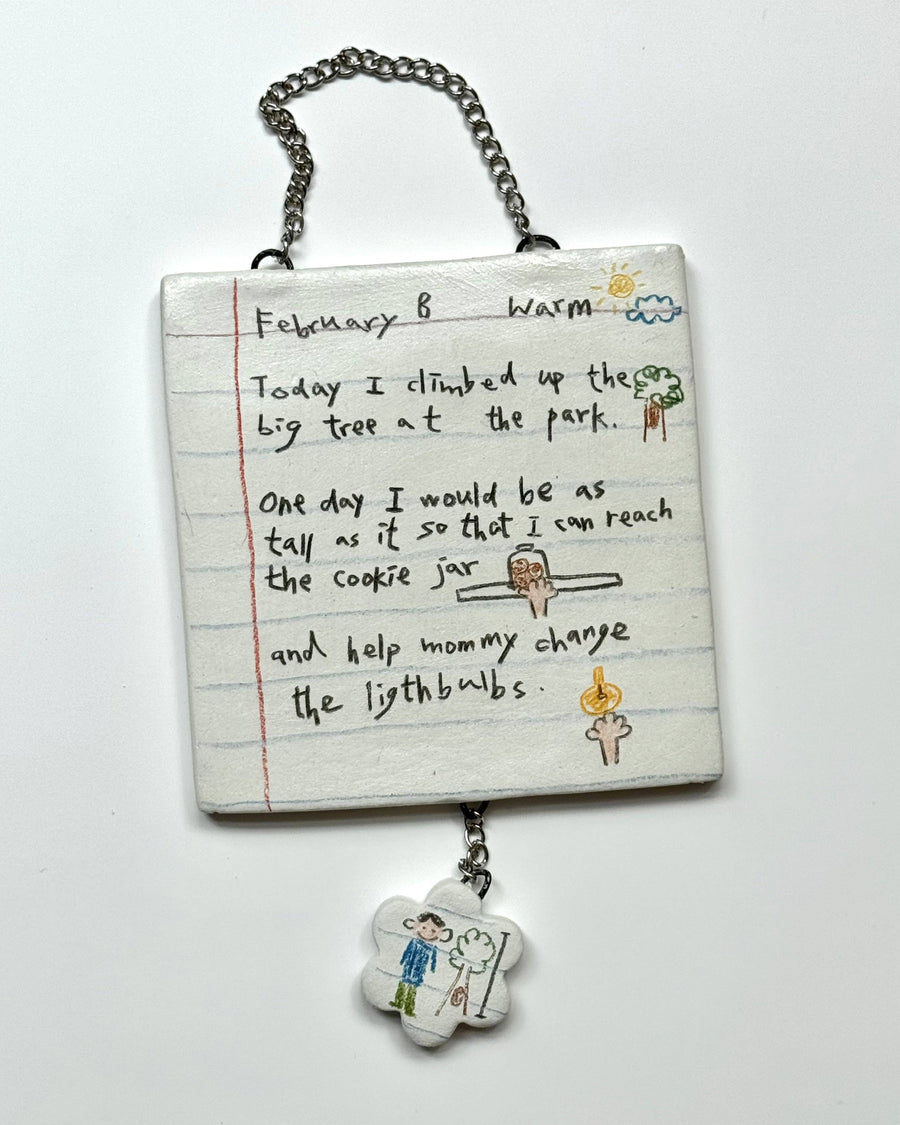 February 8 Warm
Today I climbed up the
big tree at the park.
One day I would be as
tall as it so that I can reach
the cookie jar
and help mommy change
the ligthbulbs.